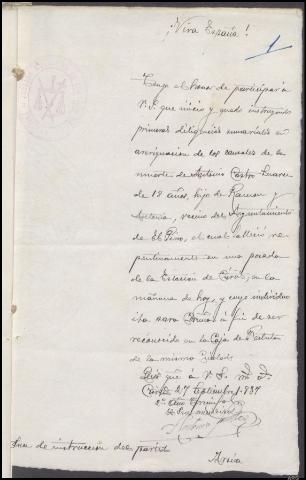 ¡Viva España!
1
Tengo el honor de participar a
V.S. que inicio y quedo instruyendo
primeras diligencias sumariales en
averiguacion de las causales de la
muerte de Antonio Castro Suarez
de 18 años, hijo de Ramon y
vecino del Ayuntamiento
de El Pino, el cual fallecio re-
pentinamente en una posada
de la Estacion de Curtis, en la
mañana de hoy, y cuyo individuo
iba para Coruña a fin de ser
reconocido en la Caja de Recluta
de la misma Ciudad.
Dios que a V.S. m. a.
Curtis 27 Septiembre 1.937
2º Año Triunfal
Juez de instruccion del partido
Arzúa